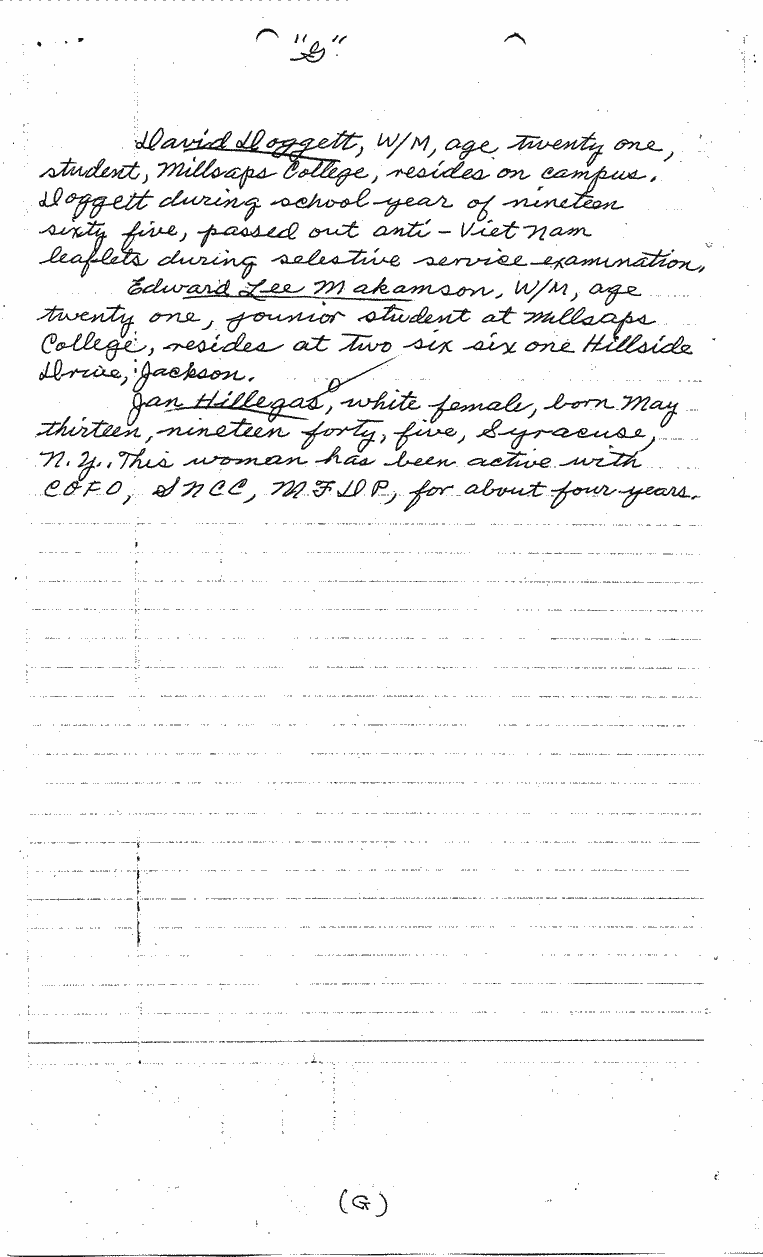 "G"
David Doggett, W/M, age twenty one,
student, Millsaps College, resides on campus.
Doggett during school year of nineteen
sixty five, passed out anti-Viet nam
leaflets during selestive service examination.
Edward Lee Makamson, W/M, age
twenty one, jounior student at millsaps
College, resides at two six six one Hillside
Drive, Jackson.
Jan Hillegas, white female, born May
thirteen, nineteen forty, five, Syracuse,
N.Y.. This woman has been active with
COFO, SNCC, MFDP, for about four years.
(G)